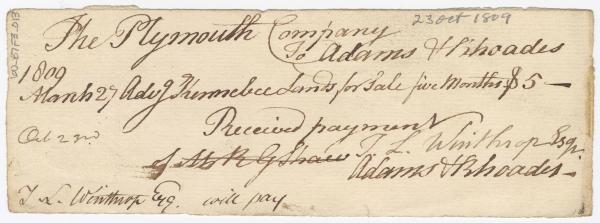 23 Oct 1809
The Plymouth Company
To Adams & Rhoades
1809
March 27 Advg Kennebec Lands for Sale five Months $5 —
Oct 23rd
Received payment
of Mr R G Shaw T. L. Winthrop Esqr
Adams & Rhoades —
T L. Winthrop Esq. will pay